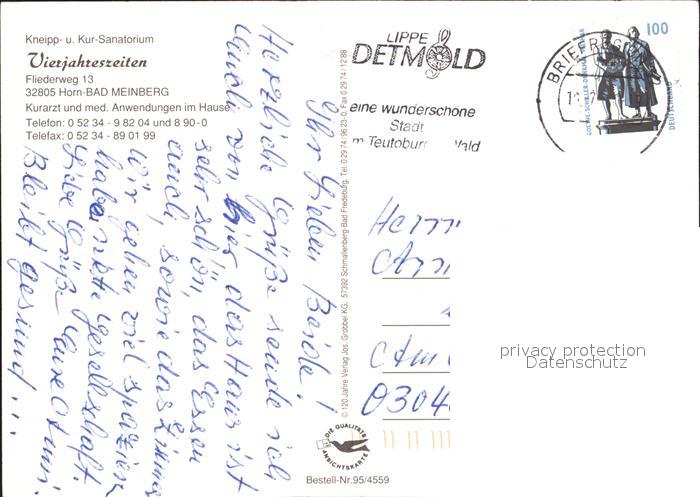 Kneipp- u. Kur-Sanatorium
Vierjahreszeiten
Fliederweg 13
32805 Horn-BAD MEINBERG
Kurarzt und med. Anwendungen im Hause
Telefon: 0 52 34 - 9 82 04 und 8 90-0
Telefax: 0 52 34 - 89 01 99
Ihr Lieben Beide!
Herzliche Grüße sende ich
Euch von hier das Haus ist
sehr schön, das Essen
auch, sowie das Zimmer
Wir gehen viel spazieren
haben nette Gesellschaft.
Liebe Grüße Eure
Bleibt gesund...
© 120 Jahre Verlag Jos. Grobbel KG, 57392 Schmallenberg-Bad Fredeburg, Tel. 0 29 74 / 96 23-0, Fax 0 29 74 / 12 88
LIPPE
DETMOLD
eine wunderschöne
Stadt
m Teutobur Wald
BRIEFRE
100
GOETHE-SCHILLER-DENKMAL
DEUTSCHLAND
Herrn
0304
privacy protection
Datenschutz
DIE QUALITÄTS
ANSICHTSKARTE
Bestell-Nr. 95/4559